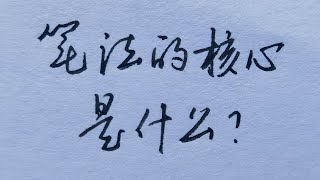 笔法的核心
是什么？